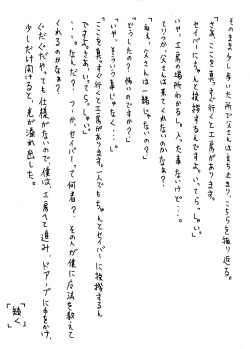 そのまま少し歩いた所で父さんは立ち止まり、こちらを振り返る。
「さあ、ここを真っすぐ行くと工房があります。
セイバーにちゃんと挨拶するんですよ。いってらっしゃい。」
いや、工房の場所わかるし、入った事ないけど…。
とりつか、父さんは来てくれないのかなぁ？
「ねぇ、父さんは一緒じゃないの？」
「どうしたの？怖いのですか？」
「いや、そういう事じゃなく…。」
「ここを真っすぐ行くと工房があります。一人でもちゃんとセイバーに挨拶するん
ですよ。さあ、いってらっしゃい。」
…。なんだ？つーか、セイバーって何者？その人が僕に魔法を教えて
くれるのかなぁ？
ぐだぐだやっても仕様がないので、僕は工房へと進み、ドアノブに手をかけ、
少しだけ開けると、光が溢れ出した。
「続く」